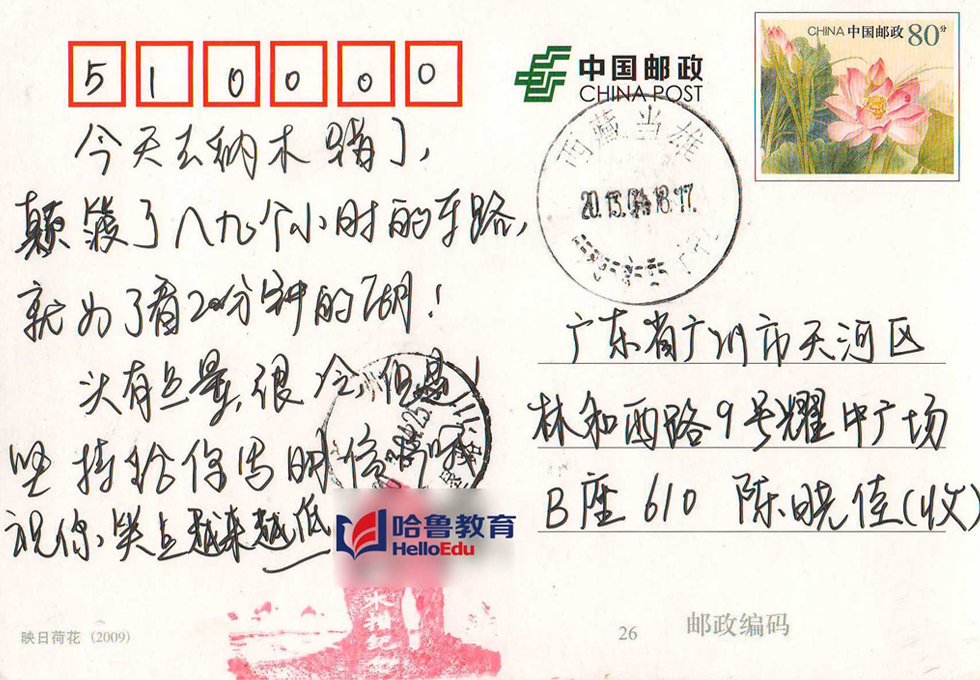 510000
中国邮政
CHINA POST
CHINA 中国邮政 80分
西藏当雄
今天去纳木错了，
颠簸了八九个小时的车路，
就为了看20分钟的湖！
头有点晕，很冷，但是！
坚持给你写明信片哦
祝你，笑点越来越低
广东省广州市天河区
林和西路9号耀中广场
B座610 陈晓佳(收)
哈鲁教育
HelloEdu
映日荷花 (2009)
26
邮政编码